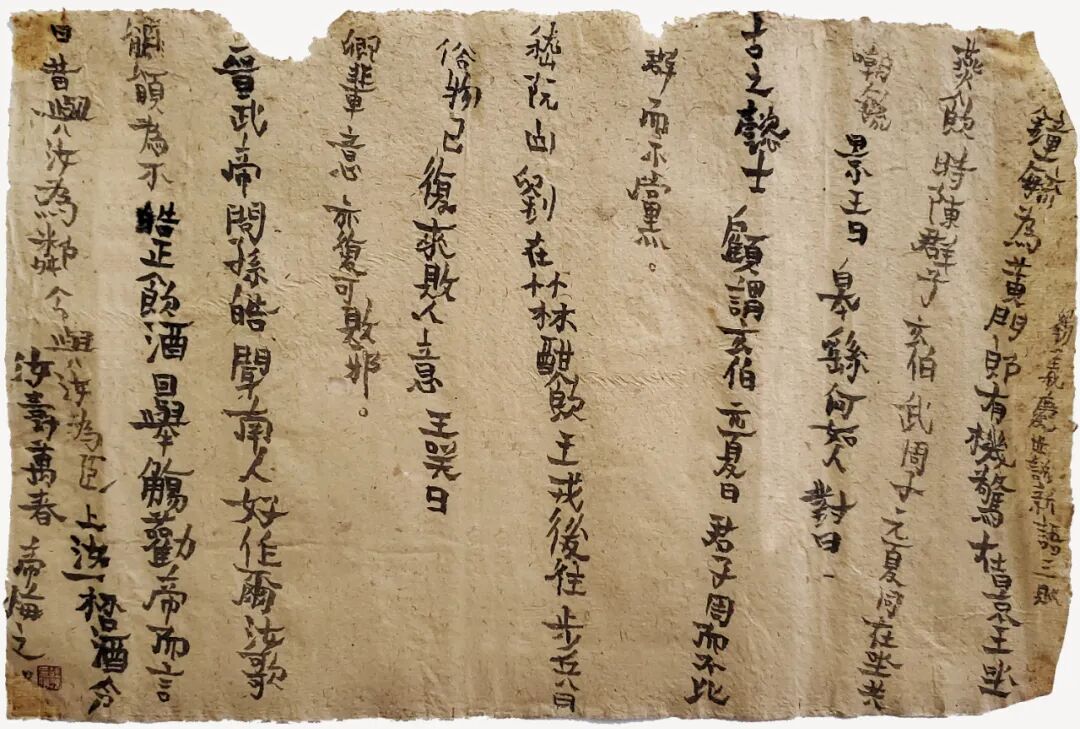 劉義慶世說新語三則
鐘毓為黃門郎有機警在景王坐
燕飲時陳群子玄伯武周子元夏同在坐共
嘲毓景王曰皋繇何如人對曰
古之懿士顧謂玄伯元夏曰君子周而不比
群而不黨。
嵇阮山劉在竹林酣飲王戎後往步兵曰
俗物已復來敗人意王笑曰
卿輩意亦復可敗邪。
晉武帝問孫皓聞南人好作爾汝歌
頗為不皓正飲酒因舉觴勸帝而言
曰昔與汝為鄰今與汝為臣上汝一桮酒令
汝壽萬春帝悔之